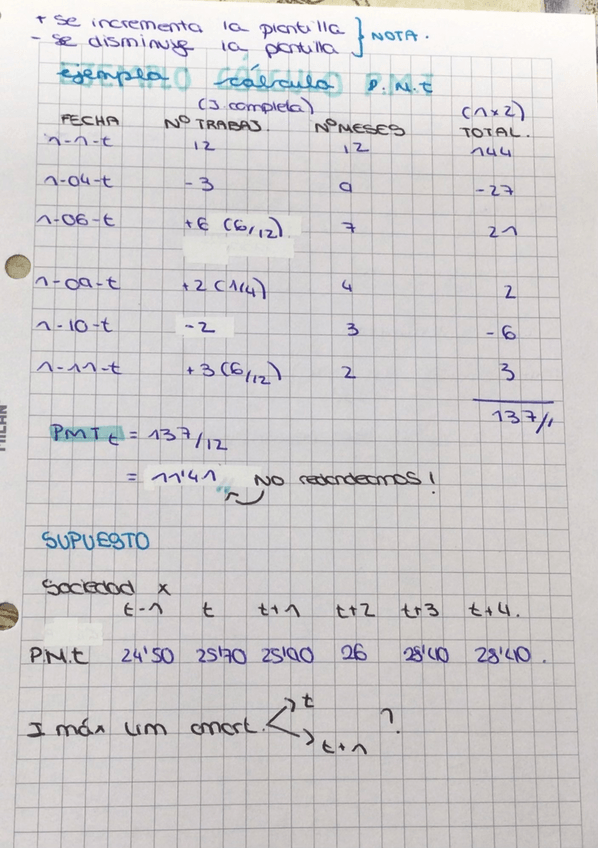 + se incrementa la plantilla } NOTA.
- se disminuye la plantilla
ejemplo cálculo P.M.t
(J. completa) (1x2)
FECHA Nº TRABAJ. Nº MESES TOTAL.
1-1-t 12 12 144
1-04-t -3 9 -27
1-06-t +6 (6/12) 7 21
1-09-t +2 (1/4) 4 2
1-10-t -2 3 -6
1-11-t +3 (6/12) 2 3
137//
PMTt = 137/12
= 11'41 NO redondeamos!
SUPUESTO
Sociedad x
t-1 t t+1 t+2 t+3 t+4.
P.M.t 24'50 25'70 25'90 26 28'40 28'40.
I máx lim amort. t ?
t+1
MILAN